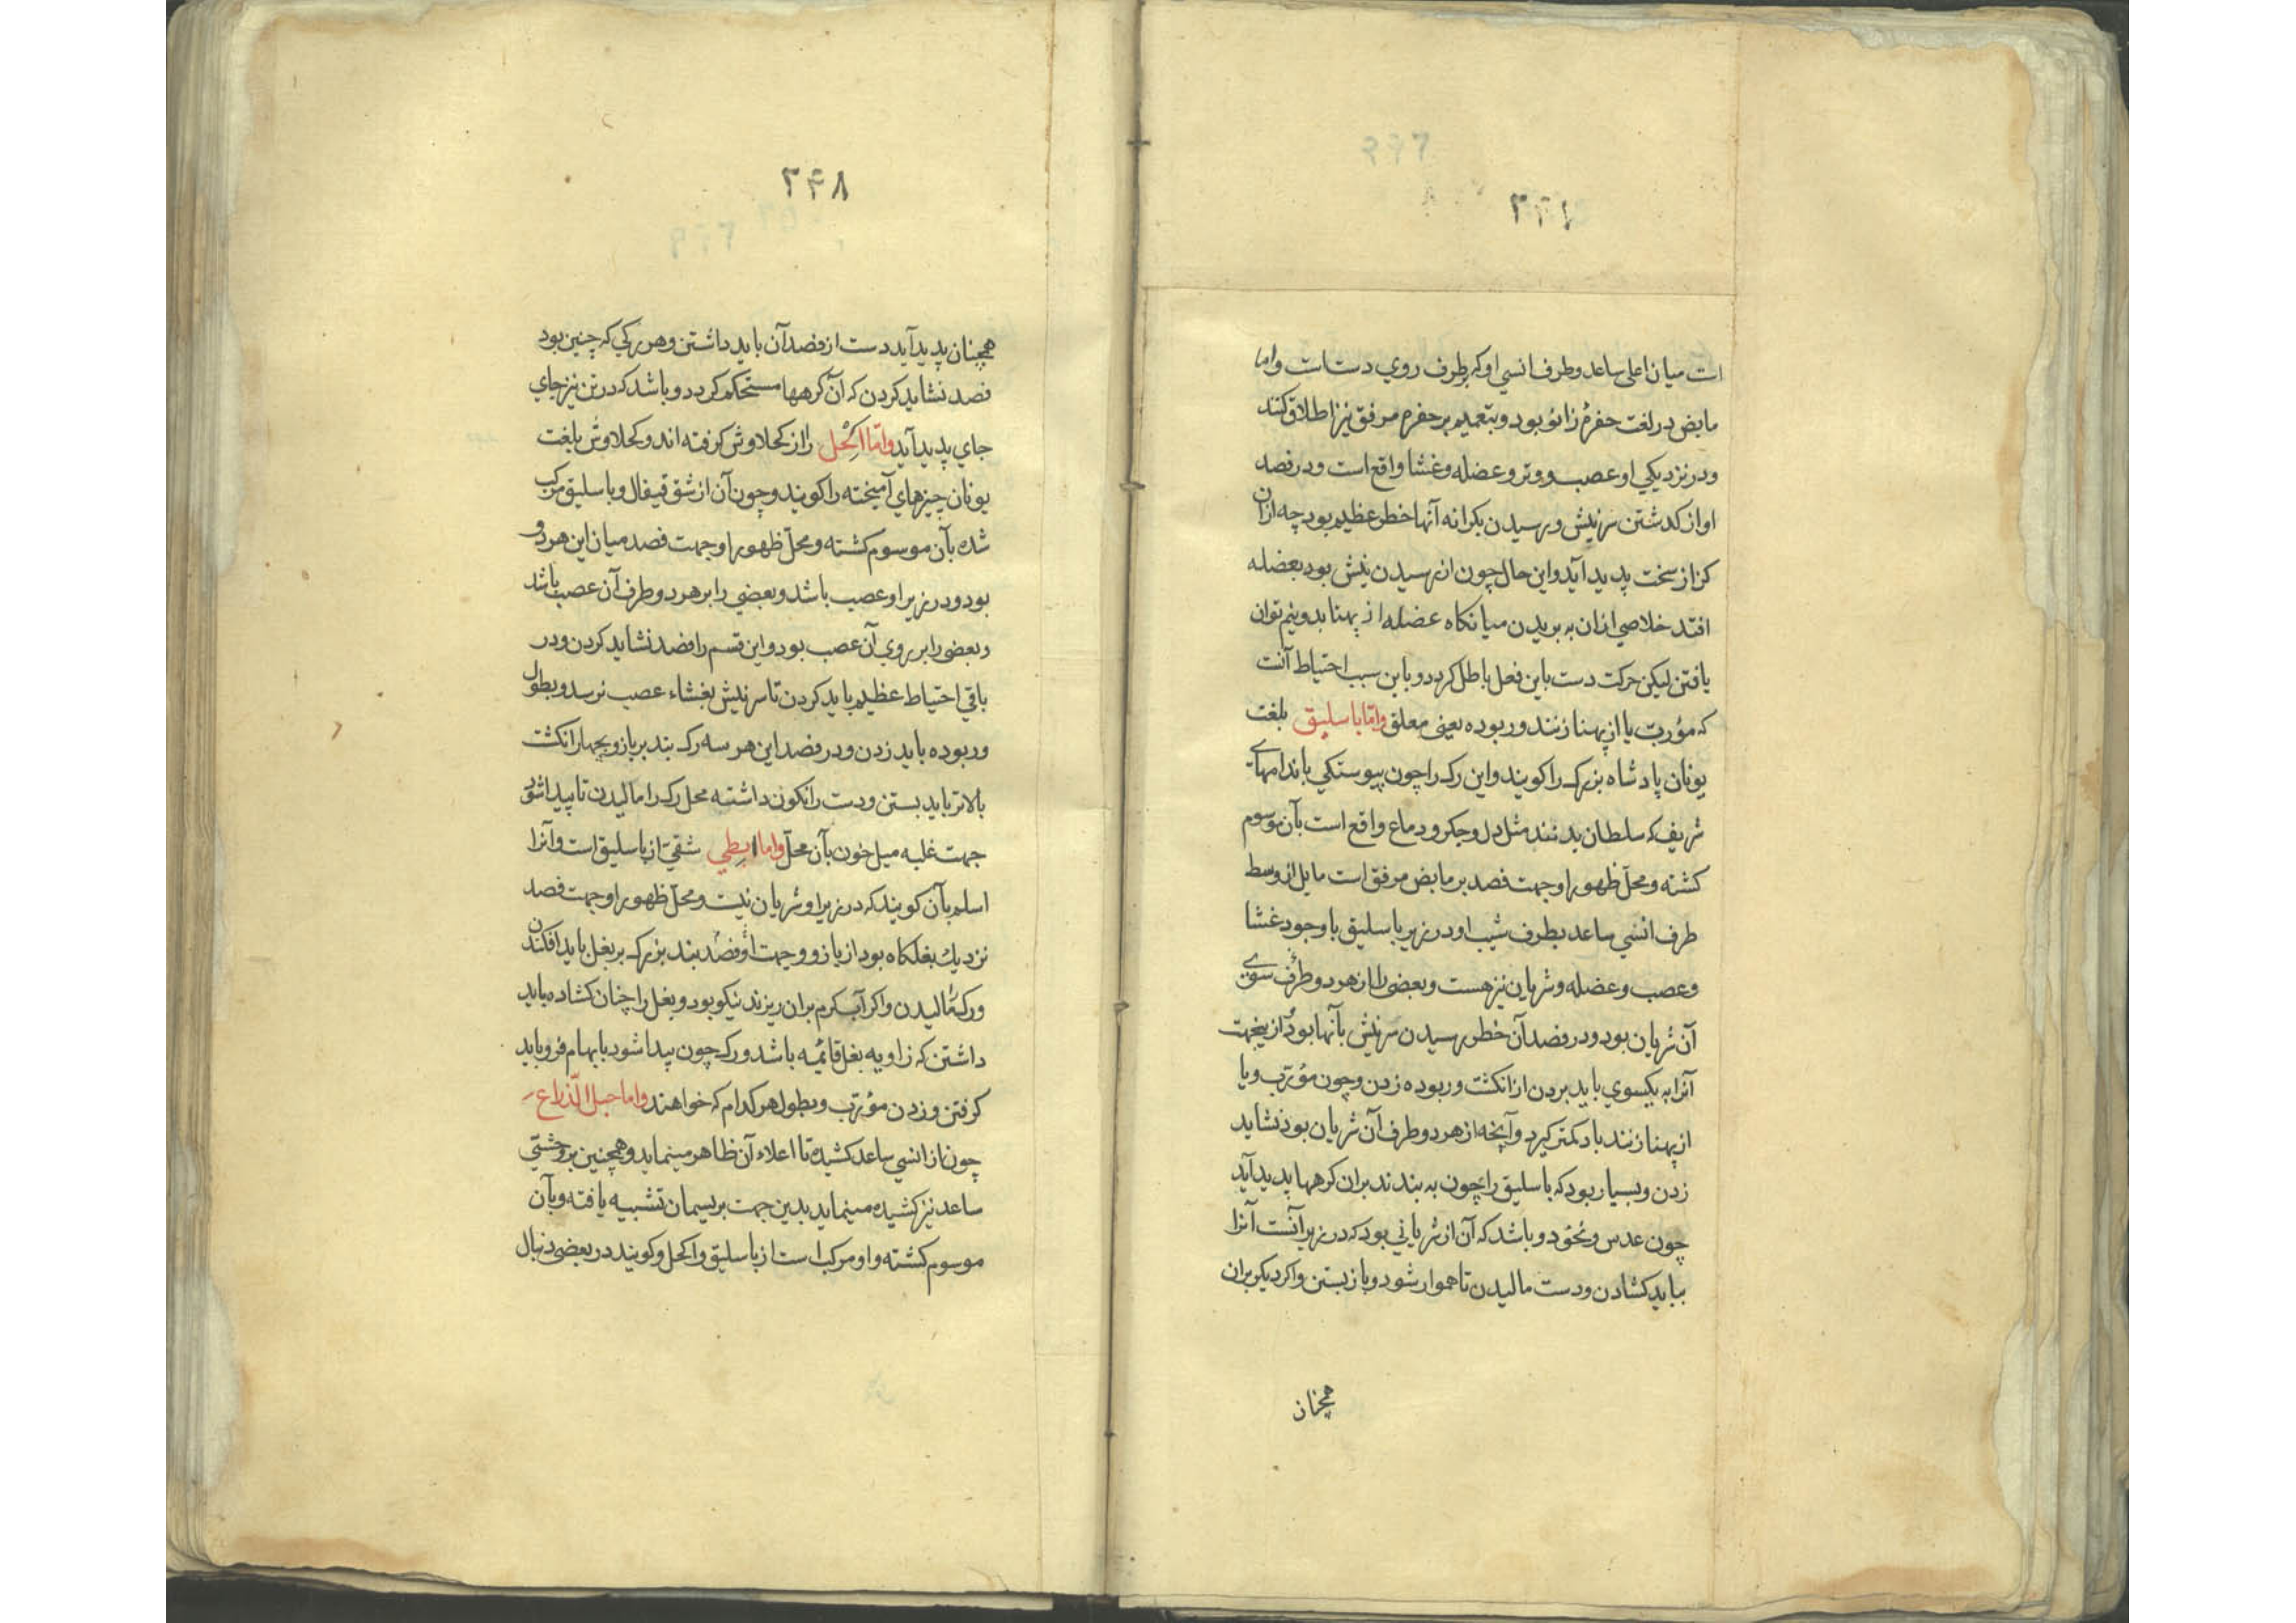 ۳۴۷
است میان اعلی ساعد و طرف انسی او که بطرف روی دستست واما
مابض در لغت حفرۀ زانو بود و بتعمیم بر حفرۀ مرفق نیز اطلاق کنند
و در نزدیکی او عصب و وتر و عضله و غشا واقع است و در فصد
او از کدشتن سر نیش و رسیدن بکرانه آنها خطر عظیم بود چه ازان
کزاز سخت پدید آید و این حال چون از رسیدن نیش بود بعضله
افتد خلاصی ازان به بریدن میانکاه عضله از پهنا بدو نیم توان
یافتن لیکن حرکت دست باین فعل باطل کردد و باین سبب احتیاط آنست
که مؤرب یا از پهنا زنند و ربوده یعنی معلق واما باسلیق بلغت
یونان پادشاه بزرک را کویند و این رک را چون پیوستکی باندامهای
شریف که سلطان بدنند مثل دل و جکر و دماغ واقع است بآن موسوم
کشته و محل ظهور او جهت فصد بر مابض مرفق است مایل از وسط
طرف انسی ساعد بطرف شیب او در زیر باسلیق با وجود غشا
و عصب و عضله و شریان نیز هست و بعضی را از هر دو طرف سوی
آن شریان بود و در فصد آن خطر رسیدن سر نیش بآنها بود ازینجهت
آنرا به یکسوی باید بردن از انکشت و ربوده زدن و چون مؤرب و یا
از پهنا زنند باد کمتر کیرد و آنچه از هر دو طرف آن شریان بود نشاید
زدن و بسیار بود که باسلیق را چون به بندند بران کرهها پدید آید
چون عدس و نخود و باشد که آن از شریانی بود که در زیر آنست آنرا
بباید کشادن و دست مالیدن تا هموار شود و باز بستن و اکر دیکر بران
همچنان
۳۴۸
همچنان پدید آید دست از فصد آن باید داشتن و هر رکی که چنین بود
فصد نشاید کردن که آن کرهها مستحکم کردد و باشد که در تن نیز جای
جای پدید آید واما اکحل را از کحلاوش کرفته اند و کحلاوش بلغت
یونان چیزهای آمیخته را کویند و چون آن از شق قیفال و باسلیق مرکب
شده بآن موسوم کشته و محل ظهور او جهت فصد میان این هر دو
بود و در زیر او عصب باشد و بعضی را بر هر دو طرف آن عصب باشد
و بعضی را بر روی آن عصب بود و این قسم را فصد نشاید کردن و در
باقی احتیاط عظیم باید کردن تا سر نیش بغشاء عصب نرسد و بطول
و ربوده باید زدن و در فصد این هر سه رک بند بر بازو بچهار انکشت
بالاتر باید بستن و دست را نکون داشته محل رک را مالیدن تا پیدا شود
جهت غلبه میل خون بآن محل واما ابطی شقی از باسلیق است و آنرا
اسلم بآن کویند که در زیر او شریان نیست و محل ظهور او جهت فصد
نزدیك بغلکاه بود از بازو و جهت او فصد بند بزرک بر بغل باید افکندن
و رک مالیدن و اکر آب کرم بران ریزند نیکو بود و بغل را چنان کشاده باید
داشتن که زاویه بغل قائمه باشد و رک چون پیدا شود بابهام فرو باید
کرفتن و زدن مؤرب و بطول هر کدام که خواهند واما حبل الذراع
چون از انسی ساعد کشیده تا اعلاء آن ظاهر مینماید و همچنین بر وحشی
ساعد نیز کشیده مینماید بدین جهت بریسمان تشبیه یافته و بآن
موسوم کشته و او مرکب است از باسلیق و اکحل و کویند در بعضی دنبال